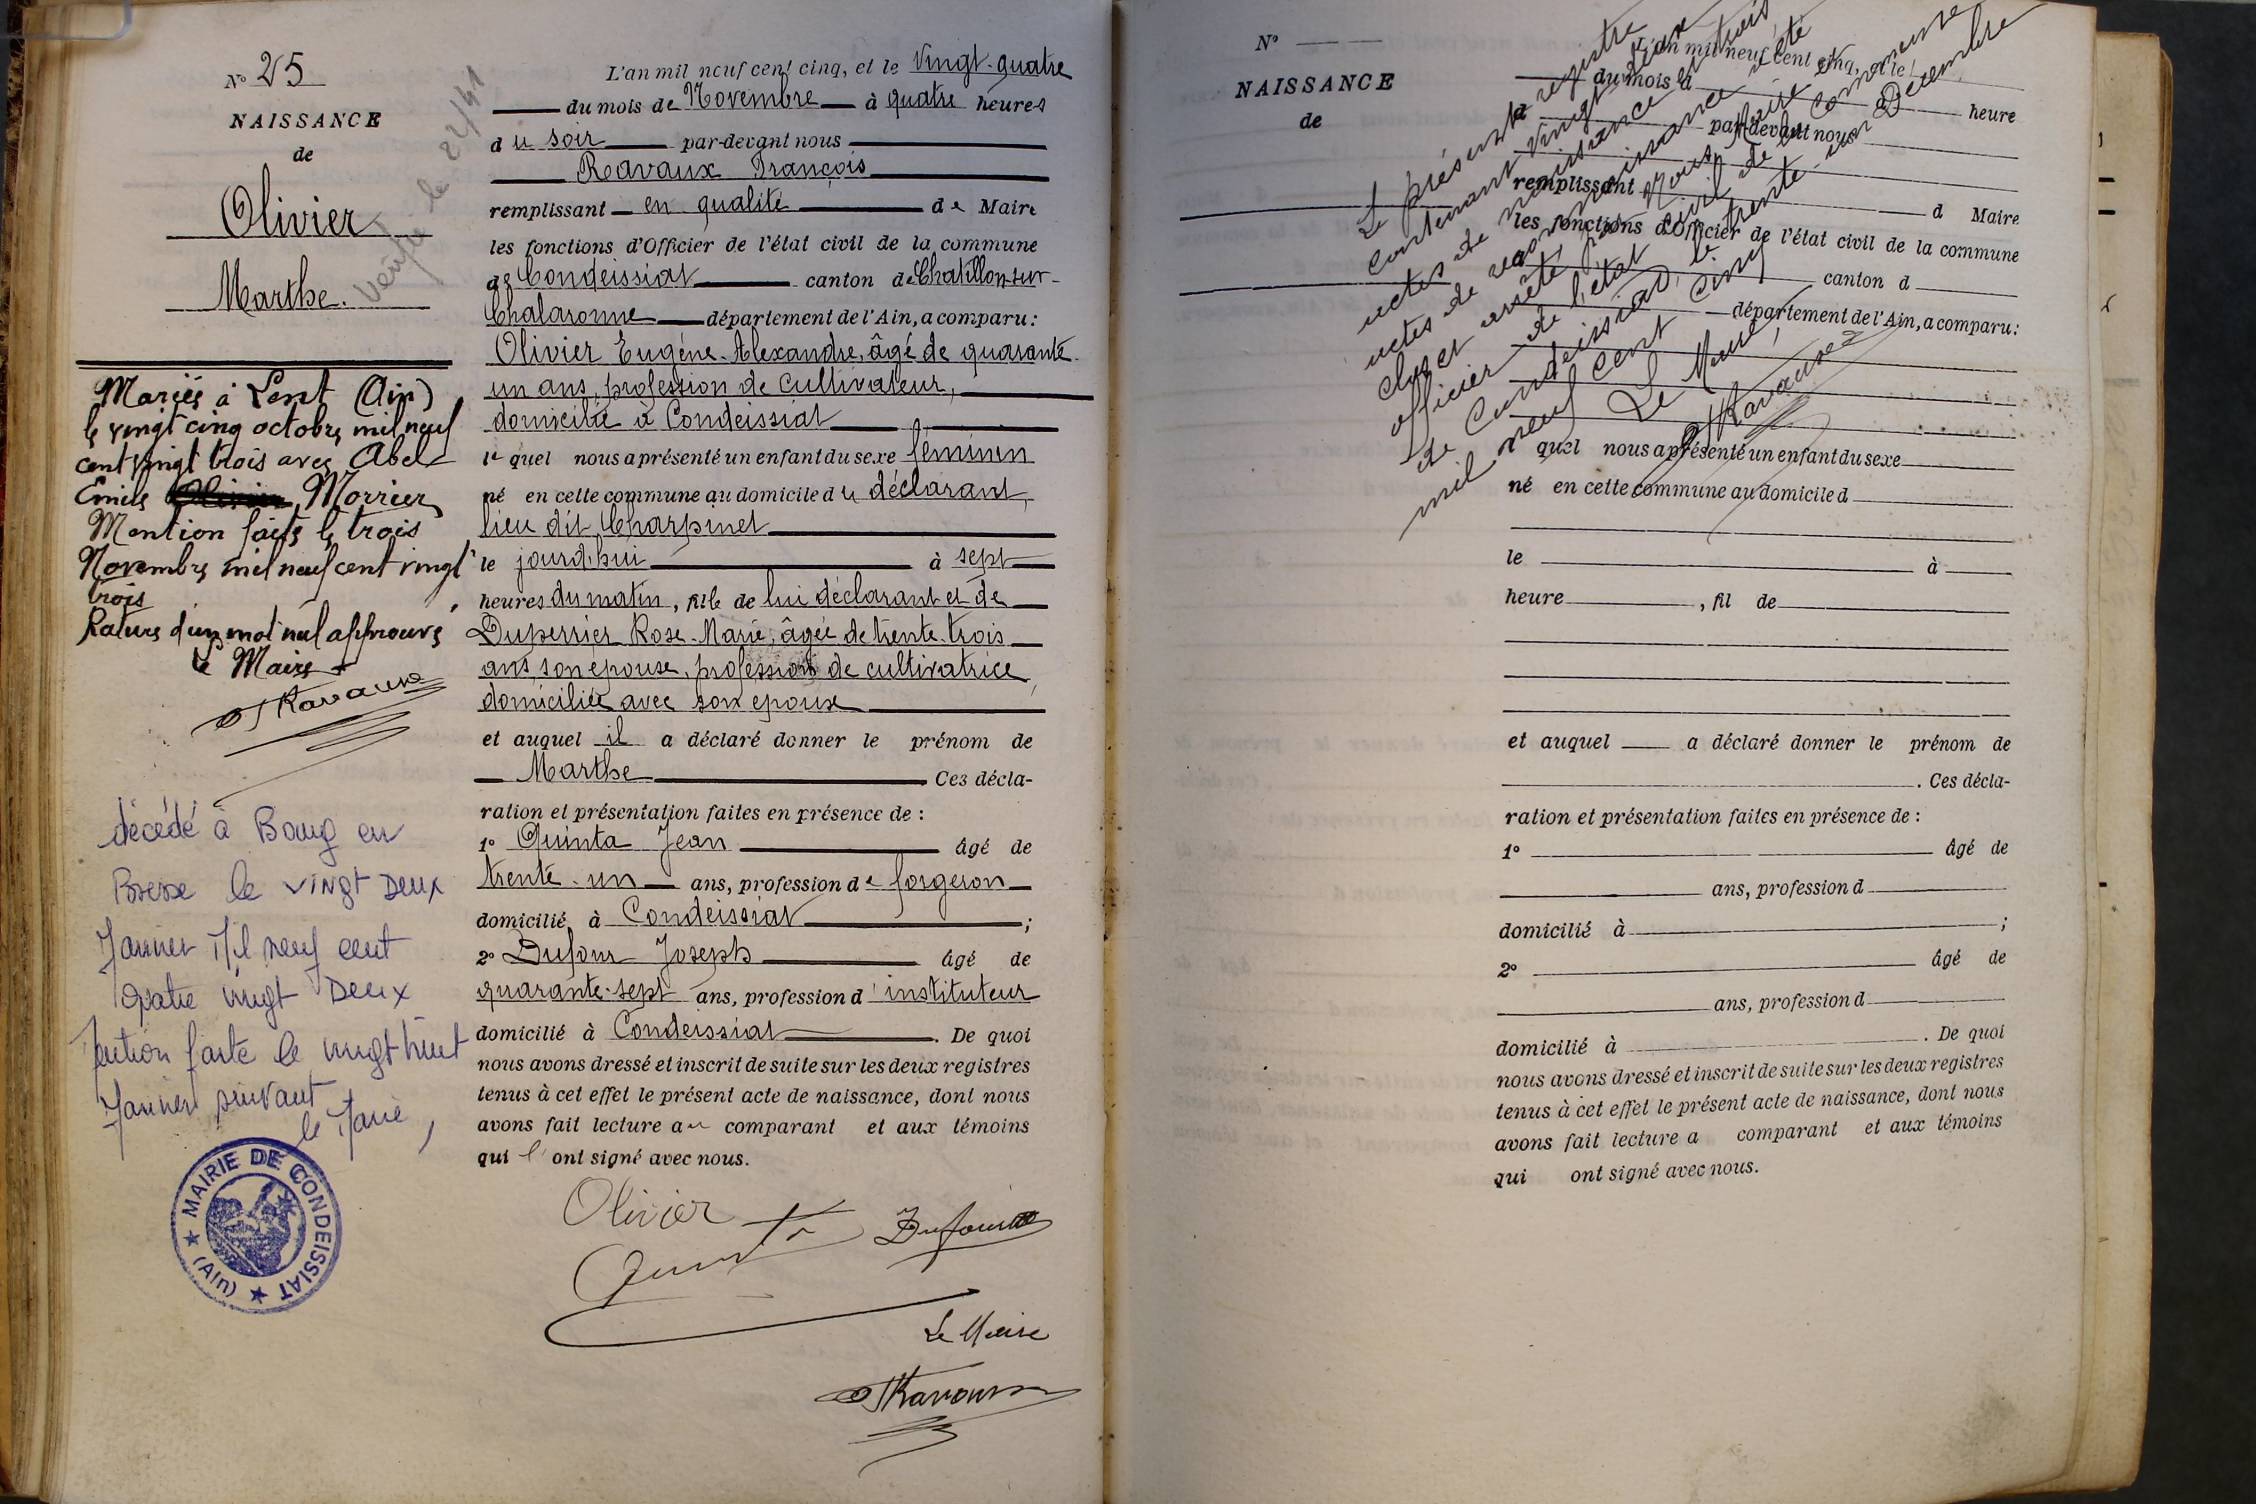 N° 25
NAISSANCE
de
Olivier
Marthe.
Vérifié le
Mariés à Lent (Ain)
le vingt cinq octobre mil neuf
cent vingt trois avec Abel
Emile Olivier Morrier
Mention faite le trois
Novembre mil neuf cent vingt
trois
Rature d'un mot nul approuvé
Le Maire
FRavaux
décédé à Bourg en
Bresse le vingt Deux
Janvier Mil neuf cent
quatre vingt Deux
faite le vingt huit
Janvier suivant
le Maire,
MAIRIE DE CONDEISSIAT
(Ain)
L'an mil neuf cent cinq, et le vingt-quatre
du mois de Novembre à quatre heures
du soir par-devant nous
Ravaux François
remplissant en qualité de Maire
les fonctions d'Officier de l'état civil de la commune
de Condeissiat canton de Chatillon-sur-
Chalaronne département de l'Ain, a comparu:
Olivier Eugène-Alexandre, âgé de quarante-
un ans, profession de cultivateur,
domicilié à Condeissiat
lequel nous a présenté un enfant du sexe féminin
né en cette commune au domicile du déclarant,
lieu dit Charpinet
le jourd'hui à sept
heures du matin, fille de lui déclarant et de
Duperrier Rose-Marie, âgée de trente-trois
ans son épouse, profession de cultivatrice,
domiciliée avec son époux
et auquel il a déclaré donner le prénom de
Marthe Ces décla-
ration et présentation faites en présence de :
1° Quinta Jean âgé de
trente-un ans, profession de forgeron
domicilié à Condeissiat ;
2° Dufour Joseph âgé de
quarante-sept ans, profession d'instituteur
domicilié à Condeissiat . De quoi
nous avons dressé et inscrit de suite sur les deux registres
tenus à cet effet le présent acte de naissance, dont nous
avons fait lecture au comparant et aux témoins
qui l'ont signé avec nous.
Olivier
Quinta Dufour
Le Maire
FRavaux
N°
NAISSANCE
de
L'an mil neuf cent cinq, et le
du mois d à heure
d par-devant nous
remplissant d Maire
les fonctions d'Officier de l'état civil de la commune
d canton d
département de l'Ain, a comparu:
quel nous a présenté un enfant du sexe
né en cette commune au domicile d
le à
heure , fil de
et auquel a déclaré donner le prénom de
. Ces décla-
ration et présentation faites en présence de :
1° âgé de
ans, profession d
domicilié à ;
2° âgé de
ans, profession d
domicilié à . De quoi
nous avons dressé et inscrit de suite sur les deux registres
tenus à cet effet le présent acte de naissance, dont nous
avons fait lecture a comparant et aux témoins
qui ont signé avec nous.
Le présent registre
contenant vingt deux
actes de naissance trois
actes de reconnaissance a été
clos et arrêté par Nous, Maire et
officier de l'état civil de la commune
de Condeissiat, le trente-un Décembre
mil neuf cent cinq
Le Maire,
FRavaux